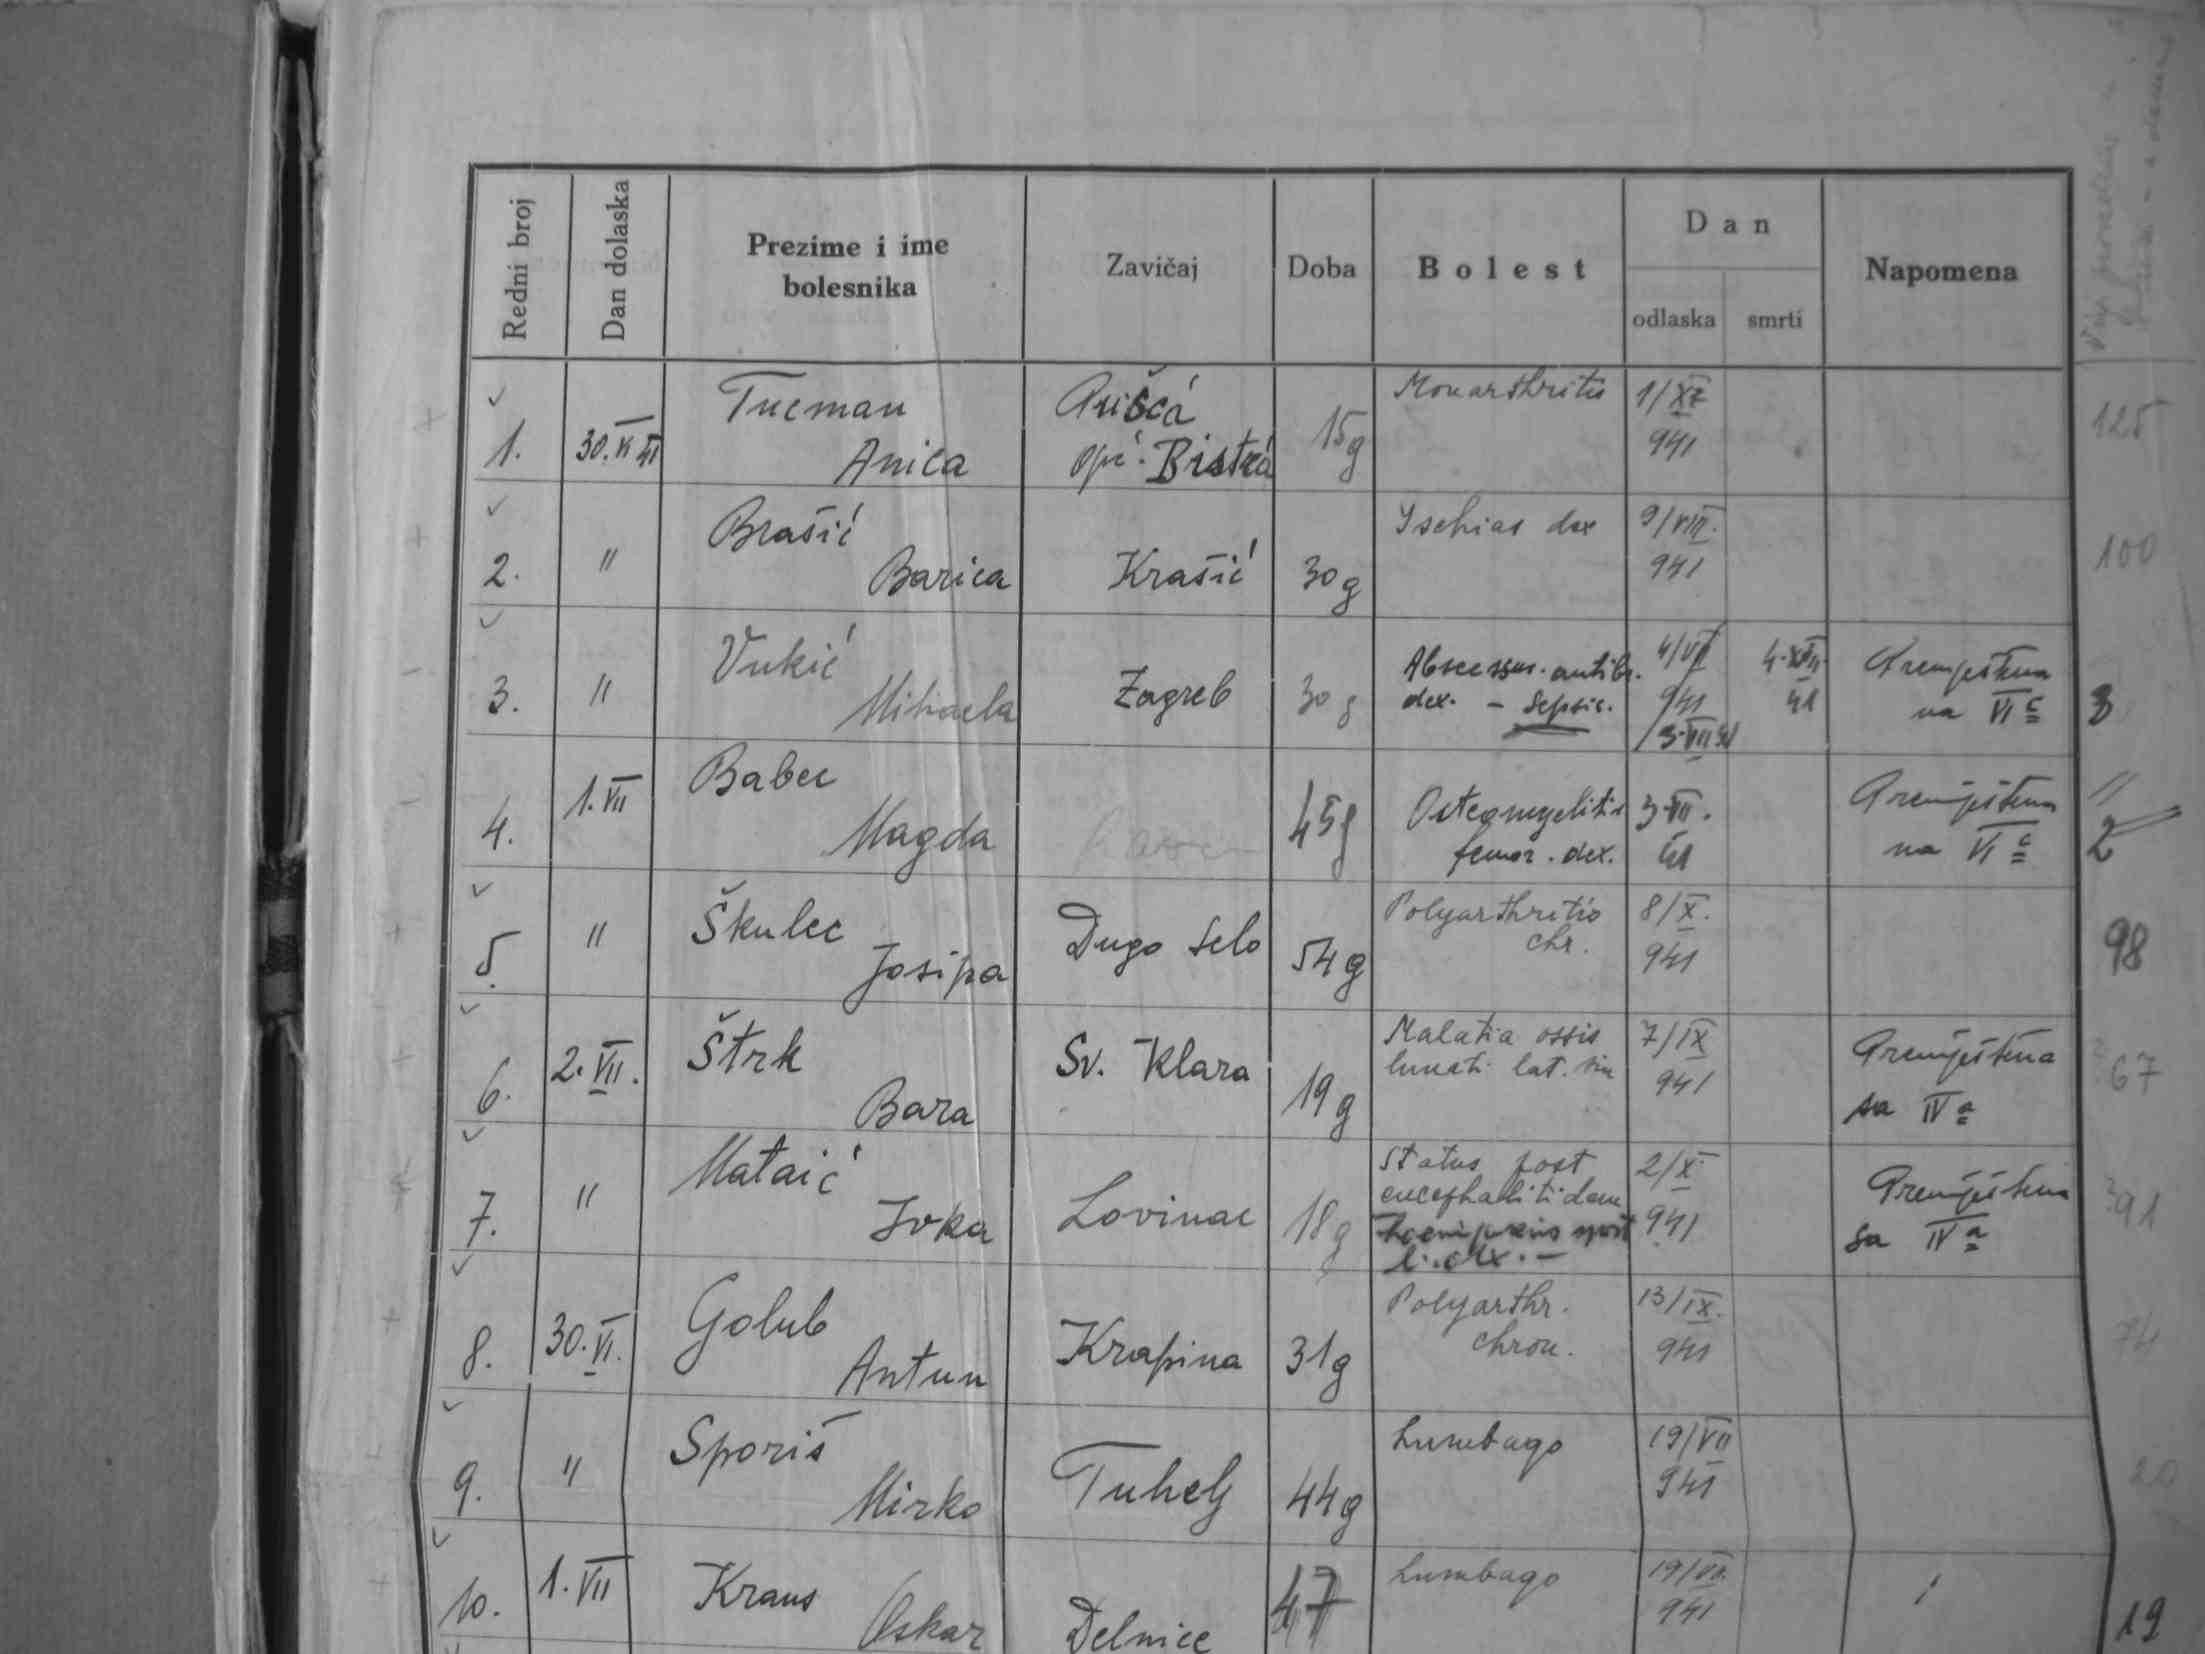 Redni broj
Dan dolaska
Prezime i ime
bolesnika
Zavičaj
Doba
Bolest
Dan
odlaska
smrti
Napomena
1. 30. VI 41 Tucman Anica opć. Bistra 15g Monarthritis 1/XI 941 125
2. " Brašić Barica Krašić 30g Ischias dex 9/VIII. 941 100
3. " Vukić Mihaela Zagreb 30g Abscessus antibr. dex. – Sepsis. 4/VII 941 3.VII 41 Premještena na VI c 3
4. 1. VII Babec Magda 45g Osteomyelitis femor. dex. 3.VII. 41 Premještena na VI c 2
5. " Škulec Josipa Dugo Selo 54g Polyarthritis chr. 8/X. 941 98
6. 2. VII. Štrk Bara Sv. Klara 19g Malatia ossis lunati lat. sin 7/IX 941 Premještena sa IV a 67
7. " Mataić Ivka Lovinac 18g Status post encephalitidem l. dex. – 2/X 941 Premještena sa IV a 91
8. 30. VI. Golub Antun Krapina 31g Polyarthr. chron. 13/IX. 941 74
9. " Sporiš Mirko Tuhelj 44g Lumbago 19/VII 941 20
10. 1. VII Kraus Oskar Delnice 47 Lumbago 19/VII. 941 19